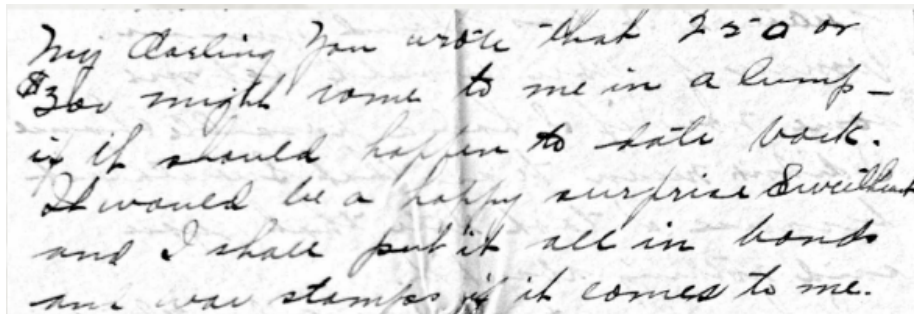 My Darling You wrote that 250 or
$300 might come to me in a lump -
if it should happen to date back.
It would be a happy surprise Sweetheart
and I shall put it all in bonds
and war stamps if it comes to me.